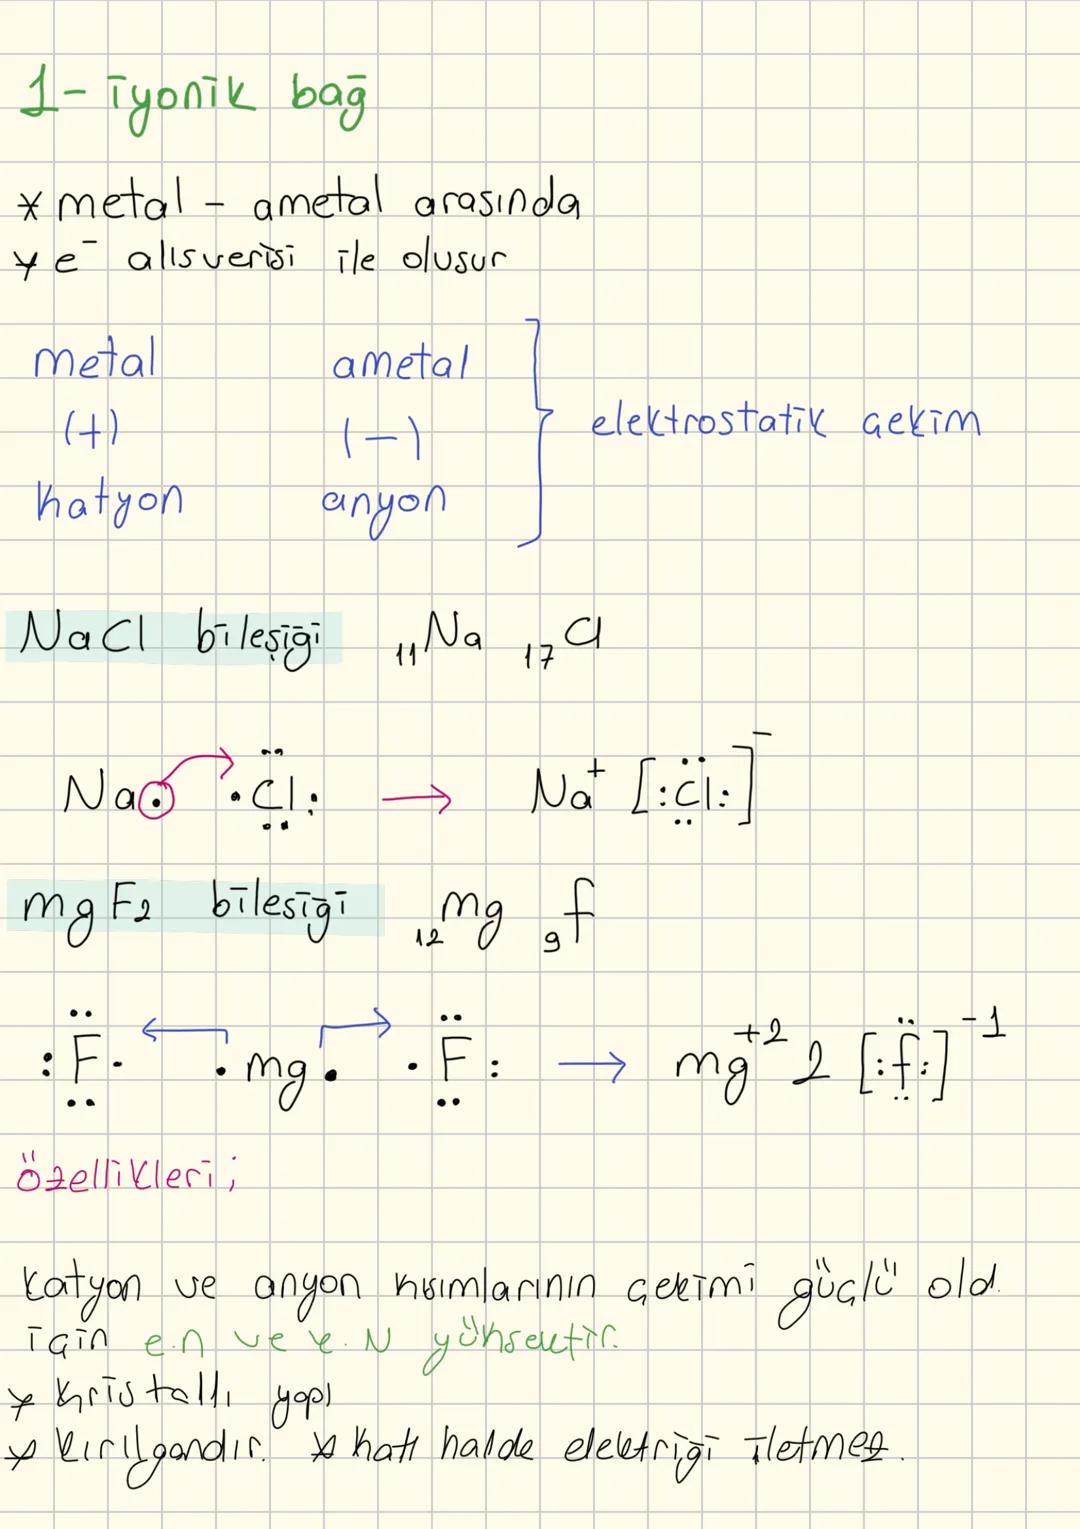 1- iyonik bağ
* metal - ametal arasında
* e⁻ alısverisi ile olusur
metal ametal
(+) (-) elektrostatik çekim
katyon anyon
NaCl bileşiği ₁₁Na ₁₇Cl
Na. .Cl: → Na⁺ [:Cl:]⁻
mgF₂ bilesiği ₁₂mg ₉f
:F. .mg. .F: → mg⁺² 2 [:f:]⁻¹
özellikleri;
Katyon ve anyon kısımlarının çekimi güçlü old.
için e.n ve k.N yüksektir.
* kristalli yapı
* kırılgandır. * katı halde elektriği iletmez.